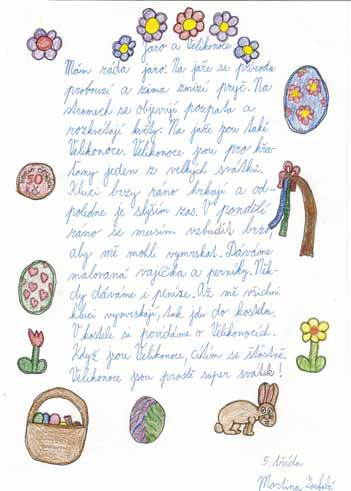 Jaro a Velikonoce
Mám ráda jaro. Na jaře se příroda
probouzí a zima zmizí pryč. Na
stromech se objevují poupata a
rozkvétají květy. Na jaře jsou také
Velikonoce. Velikonoce jsou pro křes-
ťany jeden z velkých svátků.
Kluci brzy ráno hrkají a od-
poledne je slyším zas. V pondělí
ráno se musím vzbudit brzo,
aby mě mohli vymrskat. Dáváme
malovaná vajíčka a perníky. Něk-
dy dáváme i peníze. Až mě všichni
kluci vymrskají, tak jdu do kostela.
V kostele si povídáme o Velikonocích.
Když jsou Velikonoce, cítím se šťastně.
Velikonoce jsou prostě super svátek!
50
5. třída
Martina